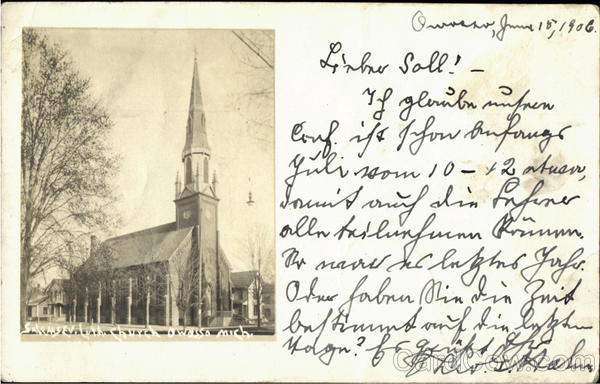 Owosso, June 15, 1906.
Lieber Soll! –
Ich glaube unsere
Conf. ist schon Anfangs
Juli vom 10 – 12 etwa,
damit auch die Lehrer
alle teilnehmen können.
So war es letztes Jahr.
Oder haben Sie die Zeit
bestimmt auf die letzten
Tage? Es grüßt Ihr
Ev. Luth. Church Owosso Mich.
CardCow.com